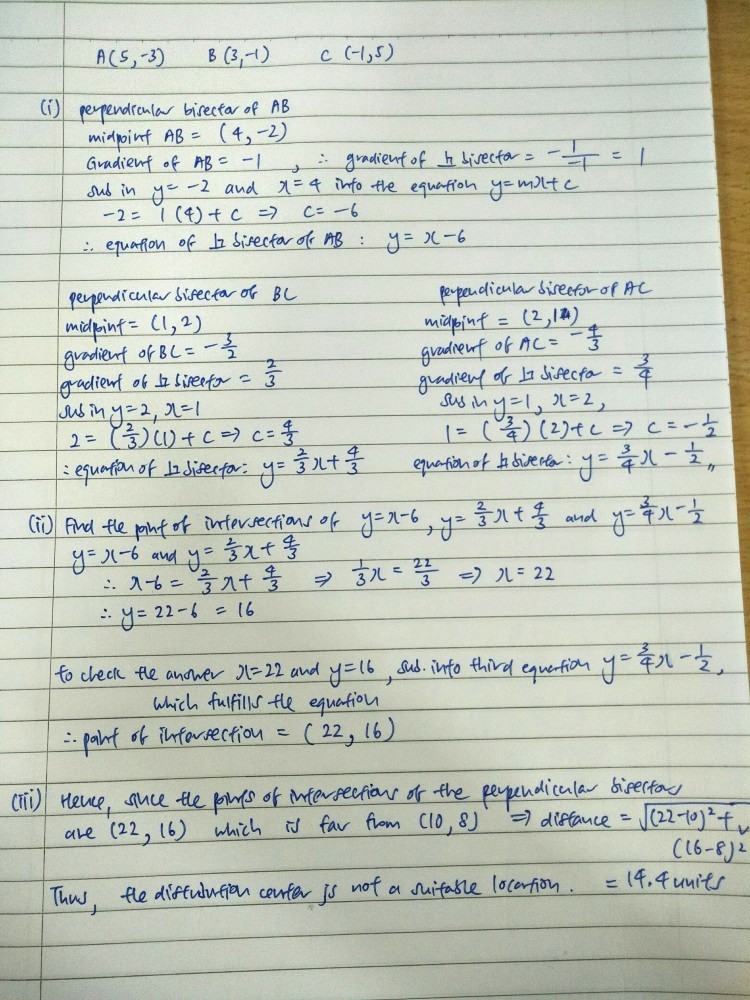 A(5,-3) B(3,-1) C (-1,5)
(i) perpendicular bisector of AB
midpoint AB = (4,-2)
Gradient of AB = -1 , ∴ gradient of ⊥ bisector = -1/-1 = 1
sub in y=-2 and x=4 into the equation y=mx+c
-2 = 1(4)+c ⇒ c=-6
∴ equation of ⊥ bisector of AB : y = x-6
perpendicular bisector of BC
midpoint = (1,2)
gradient of BC = -3/2
gradient of ⊥ bisector = 2/3
sub in y=2, x=1
2 = (2/3)(1)+c ⇒ c=4/3
∴ equation of ⊥ bisector: y=2/3x+4/3
perpendicular bisector of AC
midpoint = (2,1)
gradient of AC = -4/3
gradient of ⊥ bisector = 3/4
sub in y=1, x=2,
1 = (3/4)(2)+c ⇒ c=-1/2
equation of ⊥ bisector: y=3/4x-1/2,,
(ii) Find the point of intersections of y=x-6, y=2/3x+4/3 and y=3/4x-1/2
y=x-6 and y=2/3x+4/3
∴ x-6 = 2/3x+4/3 ⇒ 1/3x = 22/3 ⇒ x=22
∴ y=22-6 = 16
to check the answer x=22 and y=16, sub. into third equation y=3/4x-1/2,
which fulfills the equation
∴ point of intersection = (22,16)
(iii) Hence, since the points of intersections of the perpendicular bisector
are (22,16) which is far from (10,8) ⇒ distance = √(22-10)²+
(16-8)²
Thus, the distribution center is not a suitable location. = 14.4 units